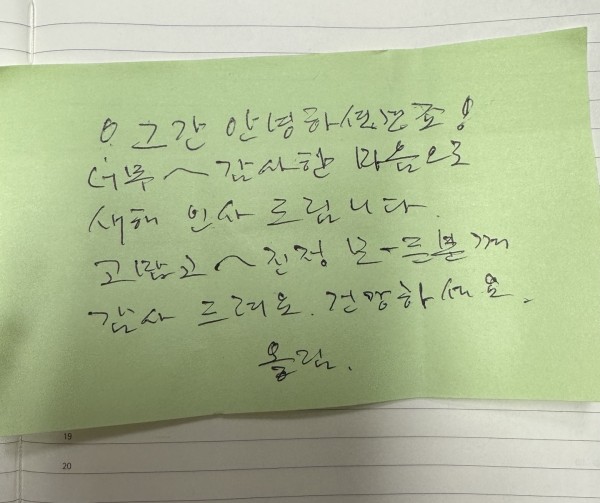 그간 안녕하셨죠!
너무~ 감사한 마음으로
새해 인사 드립니다.
고맙고~ 진정 모-든분께
감사 드려요. 건강하세요.
올림.
19
20